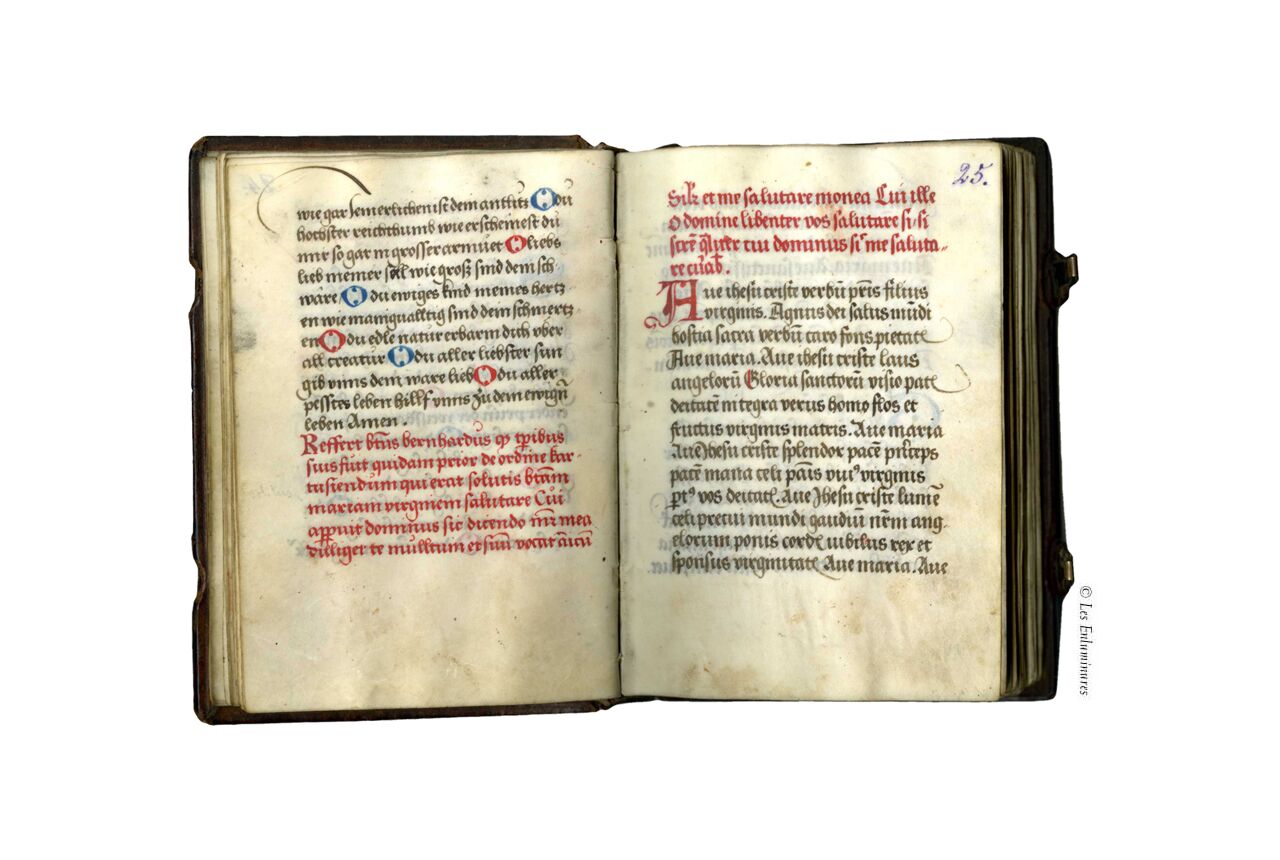 wie gar Jemerlichen ist dem antlitz O du
hochster reichthumb wie erscheinest du
mir so gar in grosser armuet O liebs
lieb meiner sell wie groß sind dein sch-
ware O du ewiges kind meines hertz-
en wie manigualltig sind dein schmertz-
en O du edle natur erbarm dich vber
all creatur O du aller liebster sun
gib vnns dein ware lieb O du aller
pesstes leben hillf vnns zu dem ewigñ
leben Amen.
Reffert btũs bernhardus
suis fuit quidam prior de ordine kar-
tusiendum qui erat solutis btãm
mariam virginem salutare Cui
apparuit dominus sic dicendo mr̃ mea
dilliget te mulltum et
25.
et me salutare monea Cui ille
O domine libenter vos salutare si si
tui dominus me saluta-
re
Aue ihesu criste verbũ pr̃is filius
virginis. Agnus dei salus mũdi
hostia sacra verbũ caro fons pietatꝭ
Aue maria. Aue ihesu criste laus
angelorũ Gloria sanctorũ visio patꝭ
deitatẽ integra verus homo flos et
fructus virginis matris. Aue maria
Aue Jhesu criste splendor pacẽ prĩceps
pacẽ mana celi virginis
vos deitatꝭ. Aue Jhesu criste lumẽ
celi precui mundi gaudiũ nr̃m ang-
elorum ponis cordꝭ iubilus rex et
sponsus virginitatꝭ Aue maria. Aue
© Les Enluminures